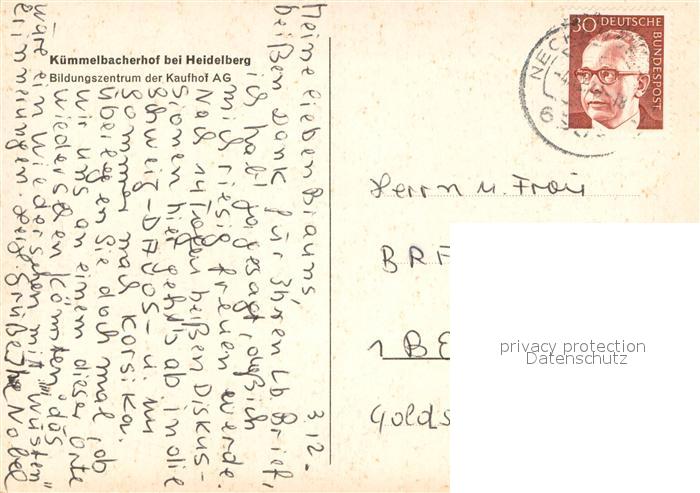 Kümmelbacherhof bei Heidelberg
Bildungszentrum der Kaufhof AG
3.12.
Meine lieben Brauns,
heißen Dank für Ihren lb Brief,
ich hab' ja gesagt, daß ich
mich riesig freuen werde.
Nach 14 Tagen heißen Diskus-
sionen hier geht's ab in die
Schweiz - DAVOS - u. im
Sommer nach Korsika.
Überlegen Sie doch mal, ob
wir uns an einem dieser Orte
wiedersehen könnten, das
wäre ein Wiedersehen mit "Wüsten"
erinnerungen. Herzl. Grüße Ihr Nobel
30 DEUTSCHE
BUNDESPOST
NECK
Herrn u. Frau
BR
1 BE
Golds
privacy protection
Datenschutz